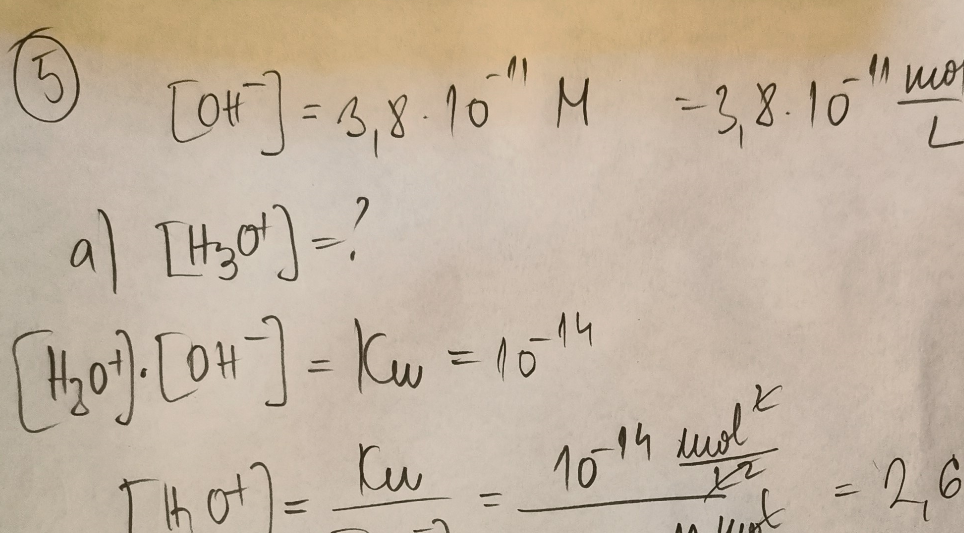 5 [OH⁻] = 3,8 · 10⁻¹¹ M = 3,8 · 10⁻¹¹ mol/L
a) [H₃O⁺] = ?
[H₃O⁺] · [OH⁻] = Kw = 10⁻¹⁴
[H₃O⁺] = Kw = 10⁻¹⁴ mol² / L² = 2,6